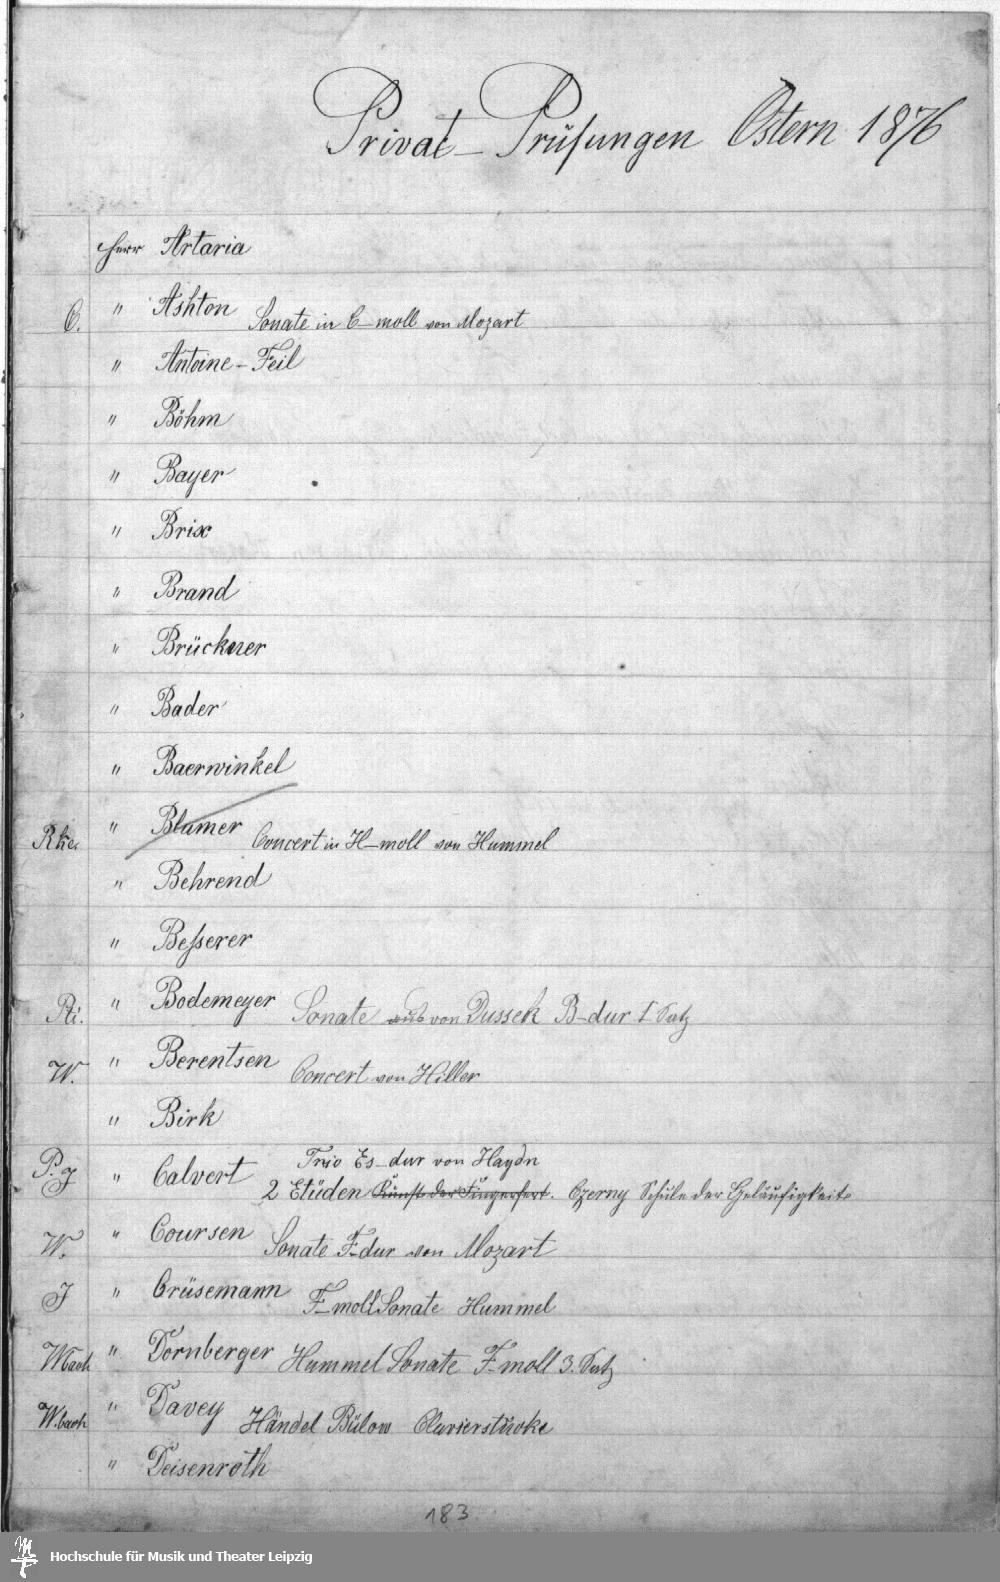 Privat-Prüfungen Ostern 1876
Herr Artaria
C. " Ashton Sonate in C-moll von Mozart
" Antoine-Feil
" Böhm
" Bayer
" Brix
" Brand
" Brückner
" Bader
" Baerwinkel
Rke. " Blumer Concert in H-moll von Hummel
" Behrend
" Beſserer
" Bodemeyer Sonate aus von Dussek B-dur 1 Satz
W. " Berentsen Concert von Hiller
" Birk
P. J " Calvert Trio Es-dur von Haydn
2 Etüden Kunst der Fingerfert. Czerny Schule der Geläufigkeit
W. " Coursen Sonate F-dur von Mozart
J " Crüsemann F-moll Sonate Hummel
Wbach " Dornberger Hummel Sonate F-moll 3. Satz
W.bach " Davey Händel Bülow Clavierstücke
" Deisenroth
183
Hochschule für Musik und Theater Leipzig